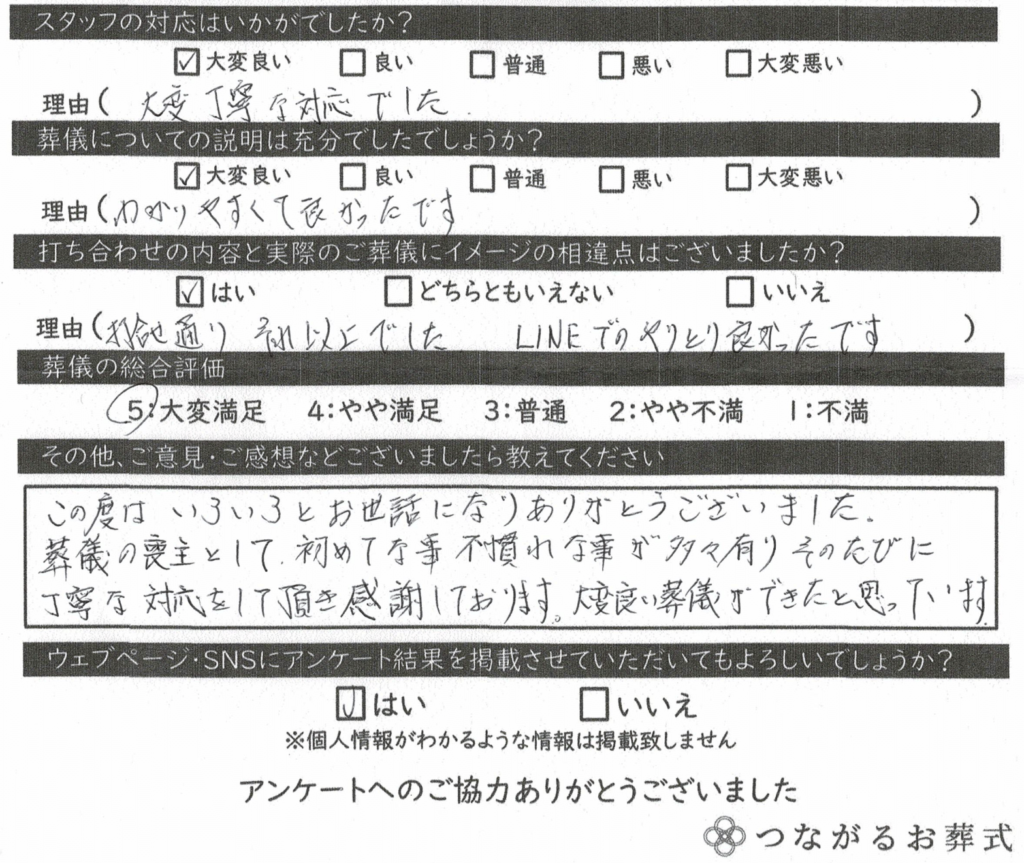 スタッフの対応はいかがでしたか?
☑大変良い □良い □普通 □悪い □大変悪い
理由( 大変丁寧な対応でした. )
葬儀についての説明は充分でしたでしょうか?
☑大変良い □良い □普通 □悪い □大変悪い
理由(わかりやすくて良かったです )
打ち合わせの内容と実際のご葬儀にイメージの相違点はございましたか?
☑はい □どちらともいえない □いいえ
理由(打合せ通り それ以上でした LINEでのやりとり良かったです )
葬儀の総合評価
5:大変満足 4:やや満足 3:普通 2:やや不満 1:不満
その他、ご意見・ご感想などございましたら教えてください
この度は いろいろとお世話になりありがとうございました。
葬儀の喪主として、初めてな事 不慣れな事が多々有り そのたびに
丁寧な対応をして頂き感謝しております。大変良い葬儀ができたと思っています.
ウェブページ・SNSにアンケート結果を掲載させていただいてもよろしいでしょうか?
☑はい □いいえ
※個人情報がわかるような情報は掲載致しません
アンケートへのご協力ありがとうございました
つながるお葬式